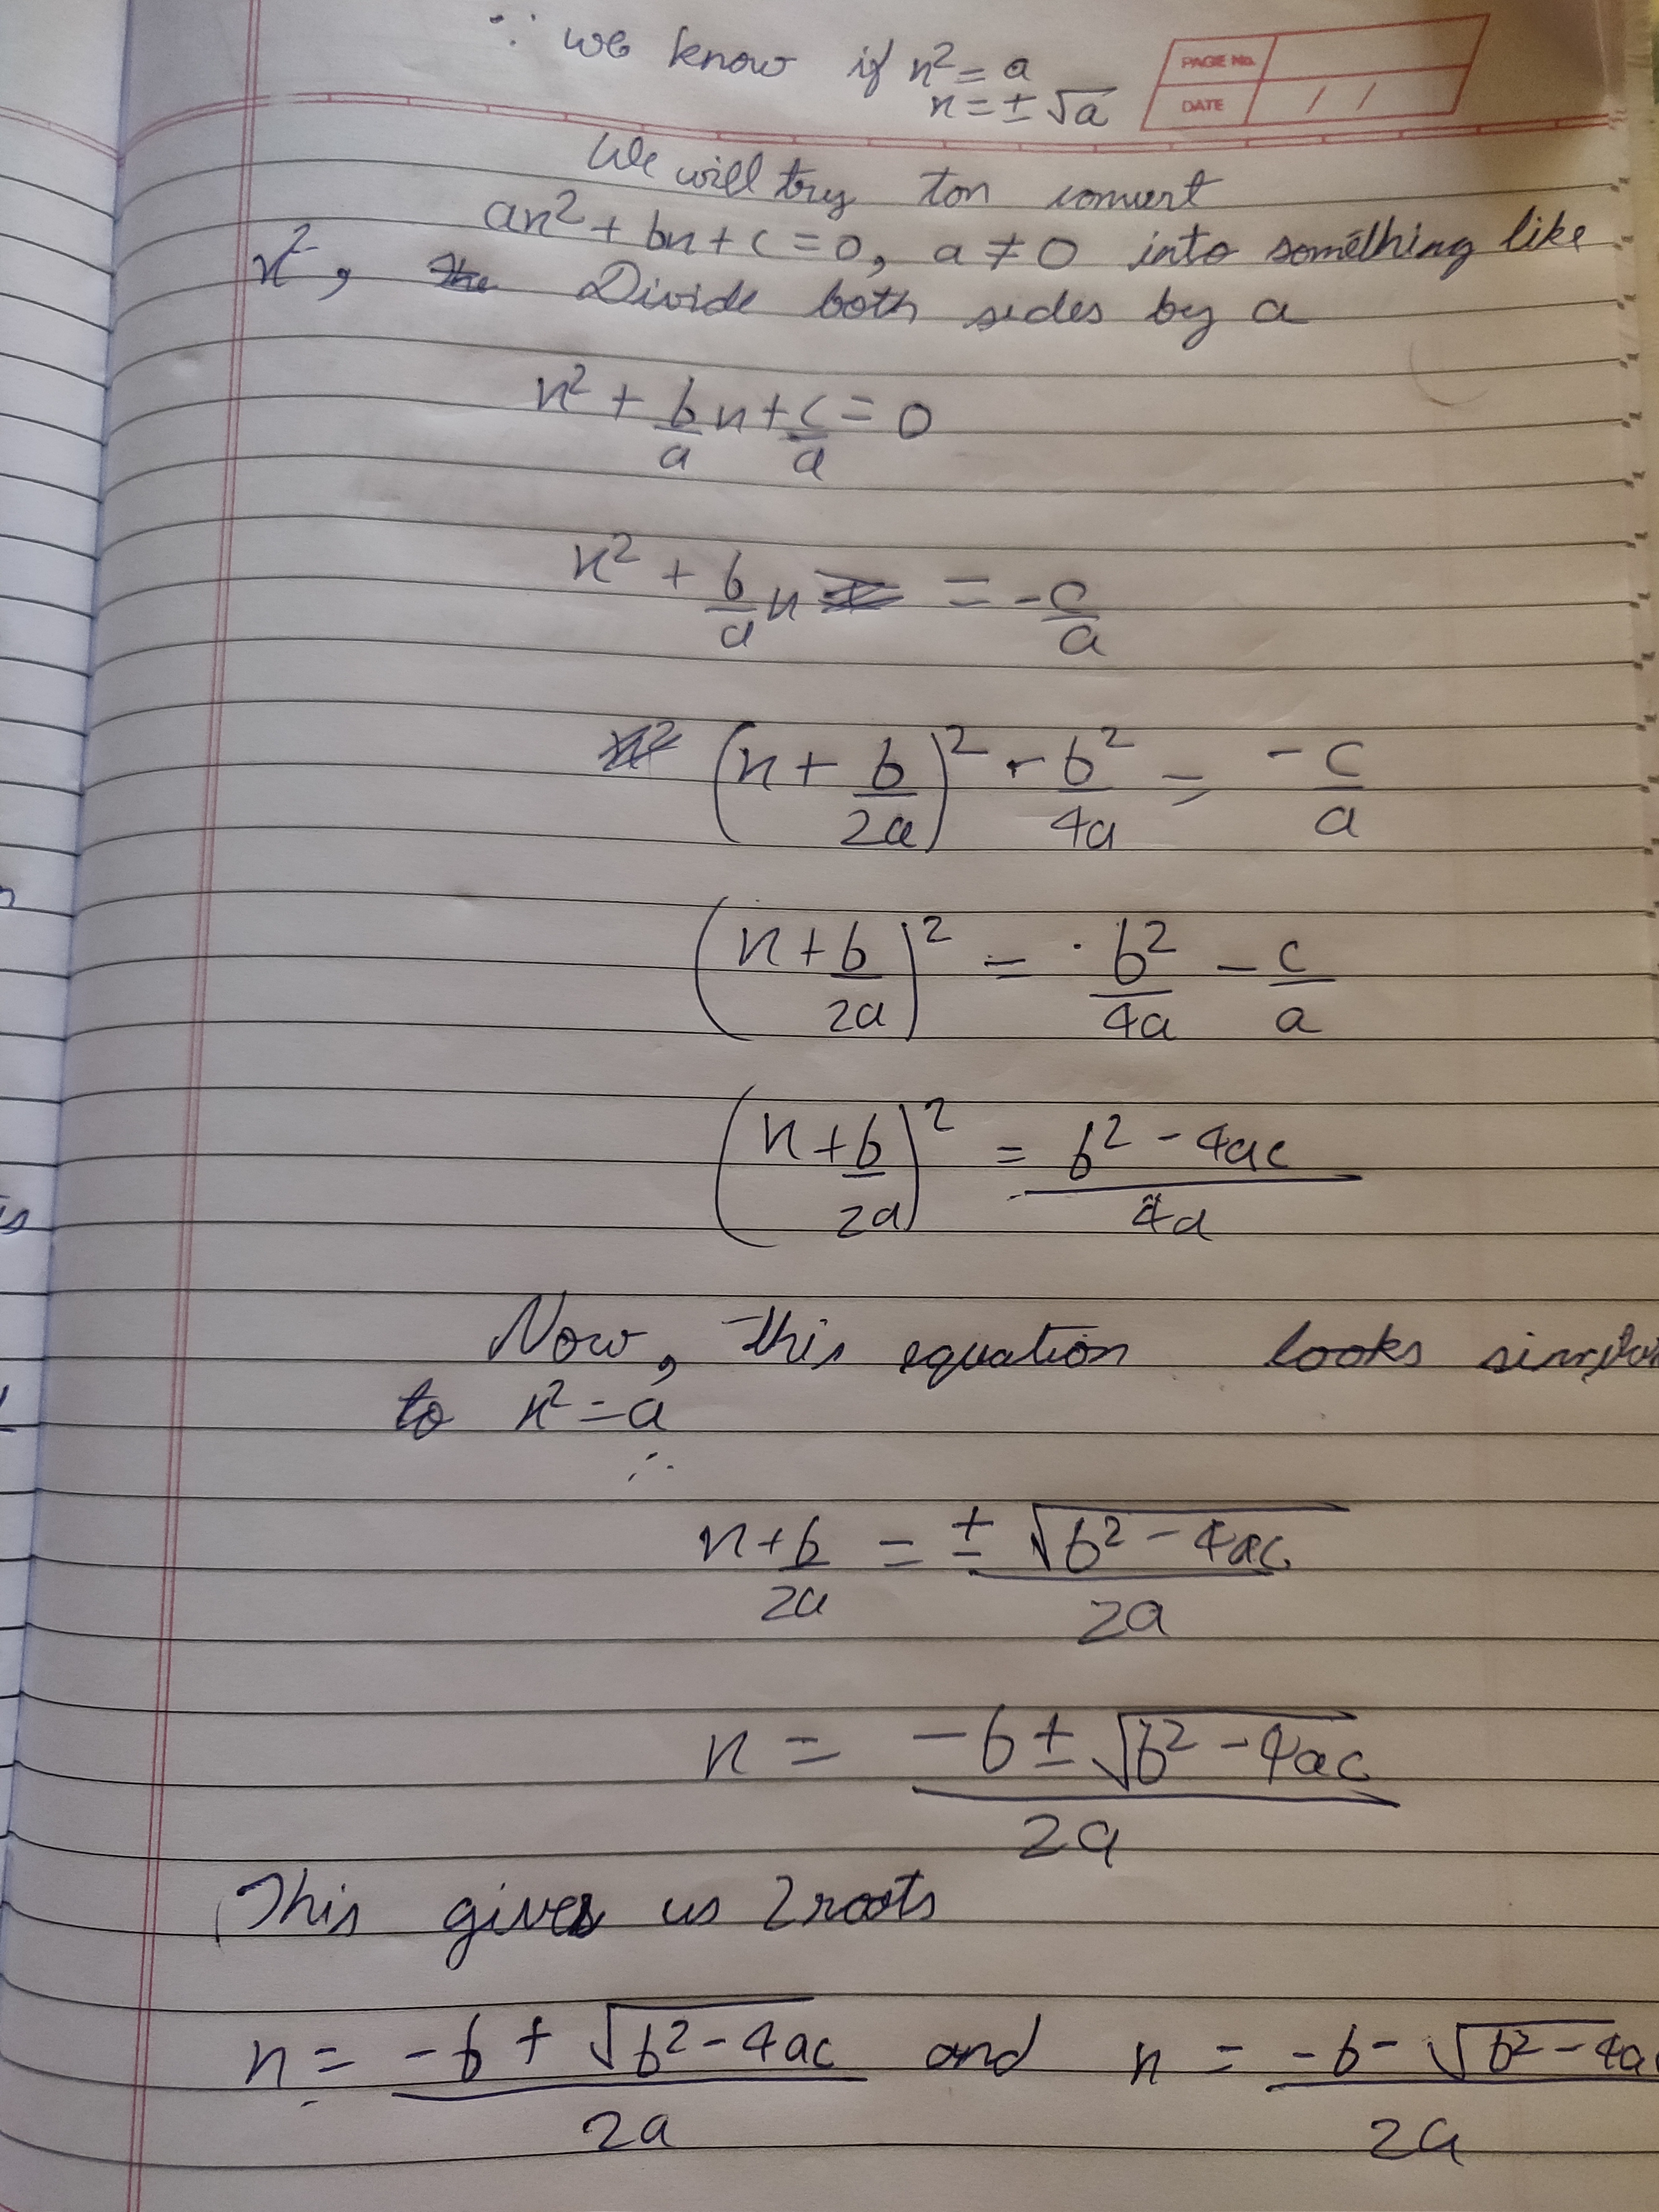 ∵ we know if x² = a
PAGE No.
x = ± √a
DATE / /
We will try ton convert
ax² + bx + c = 0, a ≠ 0 into something like
x², the Divide both sides by a
x² + b/a x + c/a = 0
x² + b/a x = -c/a
x² (x + b/2a)² - b²/4a = -c/a
(x + b/2a)² = b²/4a - c/a
(x + b/2a)² = b² - 4ac / 4a
Now, this equation looks similar
to x² = a
∴
x + b/2a = ± √b² - 4ac / 2a
x = -b ± √b² - 4ac / 2a
This gives us 2 roots
x = -b + √b² - 4ac / 2a and x = -b - √b² - 4a / 2a